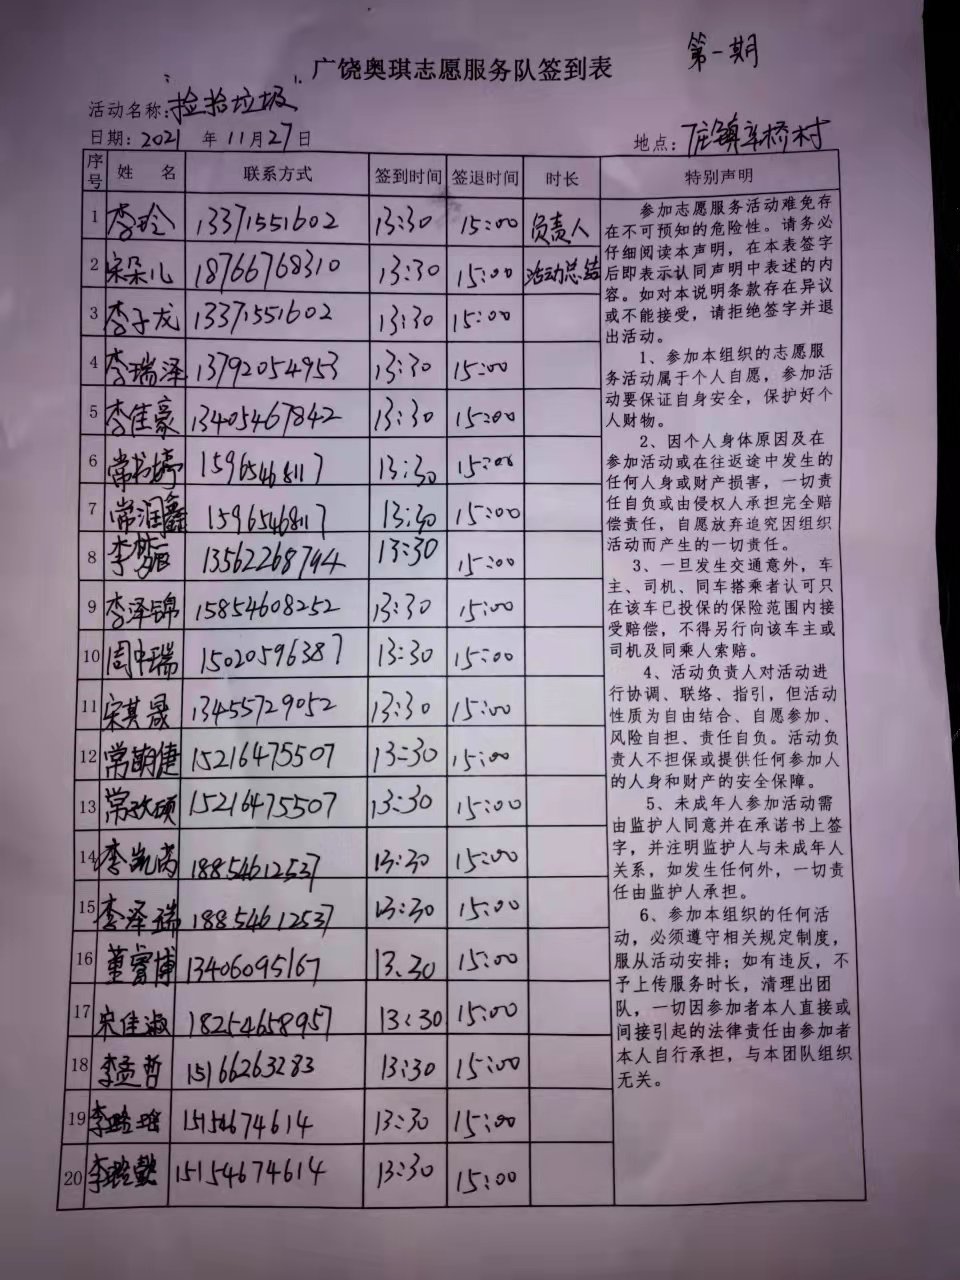 第一期
广饶奥琪志愿服务队签到表
活动名称:捡拾垃圾
日期: 2021 年 11月27日
地点: 庄镇车桥村
序号 姓 名 联系方式 签到时间 签退时间 时长 特别声明
1 李玲 13371551602 13:30 15:00 负责人
2 宋朵儿 18766768310 13:30 15:00 活动总结
3 李子龙 13371551602 13:30 15:00
4 李瑞泽 13792054953 13:30 15:00
5 李佳豪 13405467842 13:30 15:00
6 常书婷 15965468117 13:30 15:00
7 常润鑫 15965468117 13:30 15:00
8 李 13562268794 13:30 15:00
9 李泽锦 15854608252 13:30 15:00
10 周中瑞 15020596387 13:30 15:00
11 宋其晟 13455729052 13:30 15:00
12 常萌倢 15216475507 13:30 15:00
13 常硕 15216475507 13:30 15:00
14 李凯 18854612537 13:30 15:00
15 李泽瑞 18854612537 13:30 15:00
16 董睿博 13406095167 13.30 15:00
17 宋佳淑 18254658957 13:30 15:00
18 李孟哲 15166263283 13:30 15:00
19 李 15154674614 13:30 15:00
20 李 15154674614 13:30 15:00
参加志愿服务活动难免存
在不可预知的危险性。请务必
仔细阅读本声明，在本表签字
后即表示认同声明中表述的内
容。如对本说明条款存在异议
或不能接受，请拒绝签字并退
出活动。
1、参加本组织的志愿服
务活动属于个人自愿，参加活
动要保证自身安全，保护好个
人财物。
2、因个人身体原因及在
参加活动或在往返途中发生的
任何人身或财产损害，一切责
任自负或由侵权人承担完全赔
偿责任，自愿放弃追究因组织
活动而产生的一切责任。
3、一旦发生交通意外，车
主、司机、同车搭乘者认可只
在该车已投保的保险范围内接
受赔偿，不得另行向该车主或
司机及同乘人索赔。
4、活动负责人对活动进
行协调、联络、指引，但活动
性质为自由结合、自愿参加、
风险自担、责任自负。活动负
责人不担保或提供任何参加人
的人身和财产的安全保障。
5、未成年人参加活动需
由监护人同意并在承诺书上签
字，并注明监护人与未成年人
关系，如发生任何外，一切责
任由监护人承担。
6、参加本组织的任何活
动，必须遵守相关规定制度，
服从活动安排；如有违反，不
予上传服务时长，清理出团
队，一切因参加者本人直接或
间接引起的法律责任由参加者
本人自行承担，与本团队组织
无关。